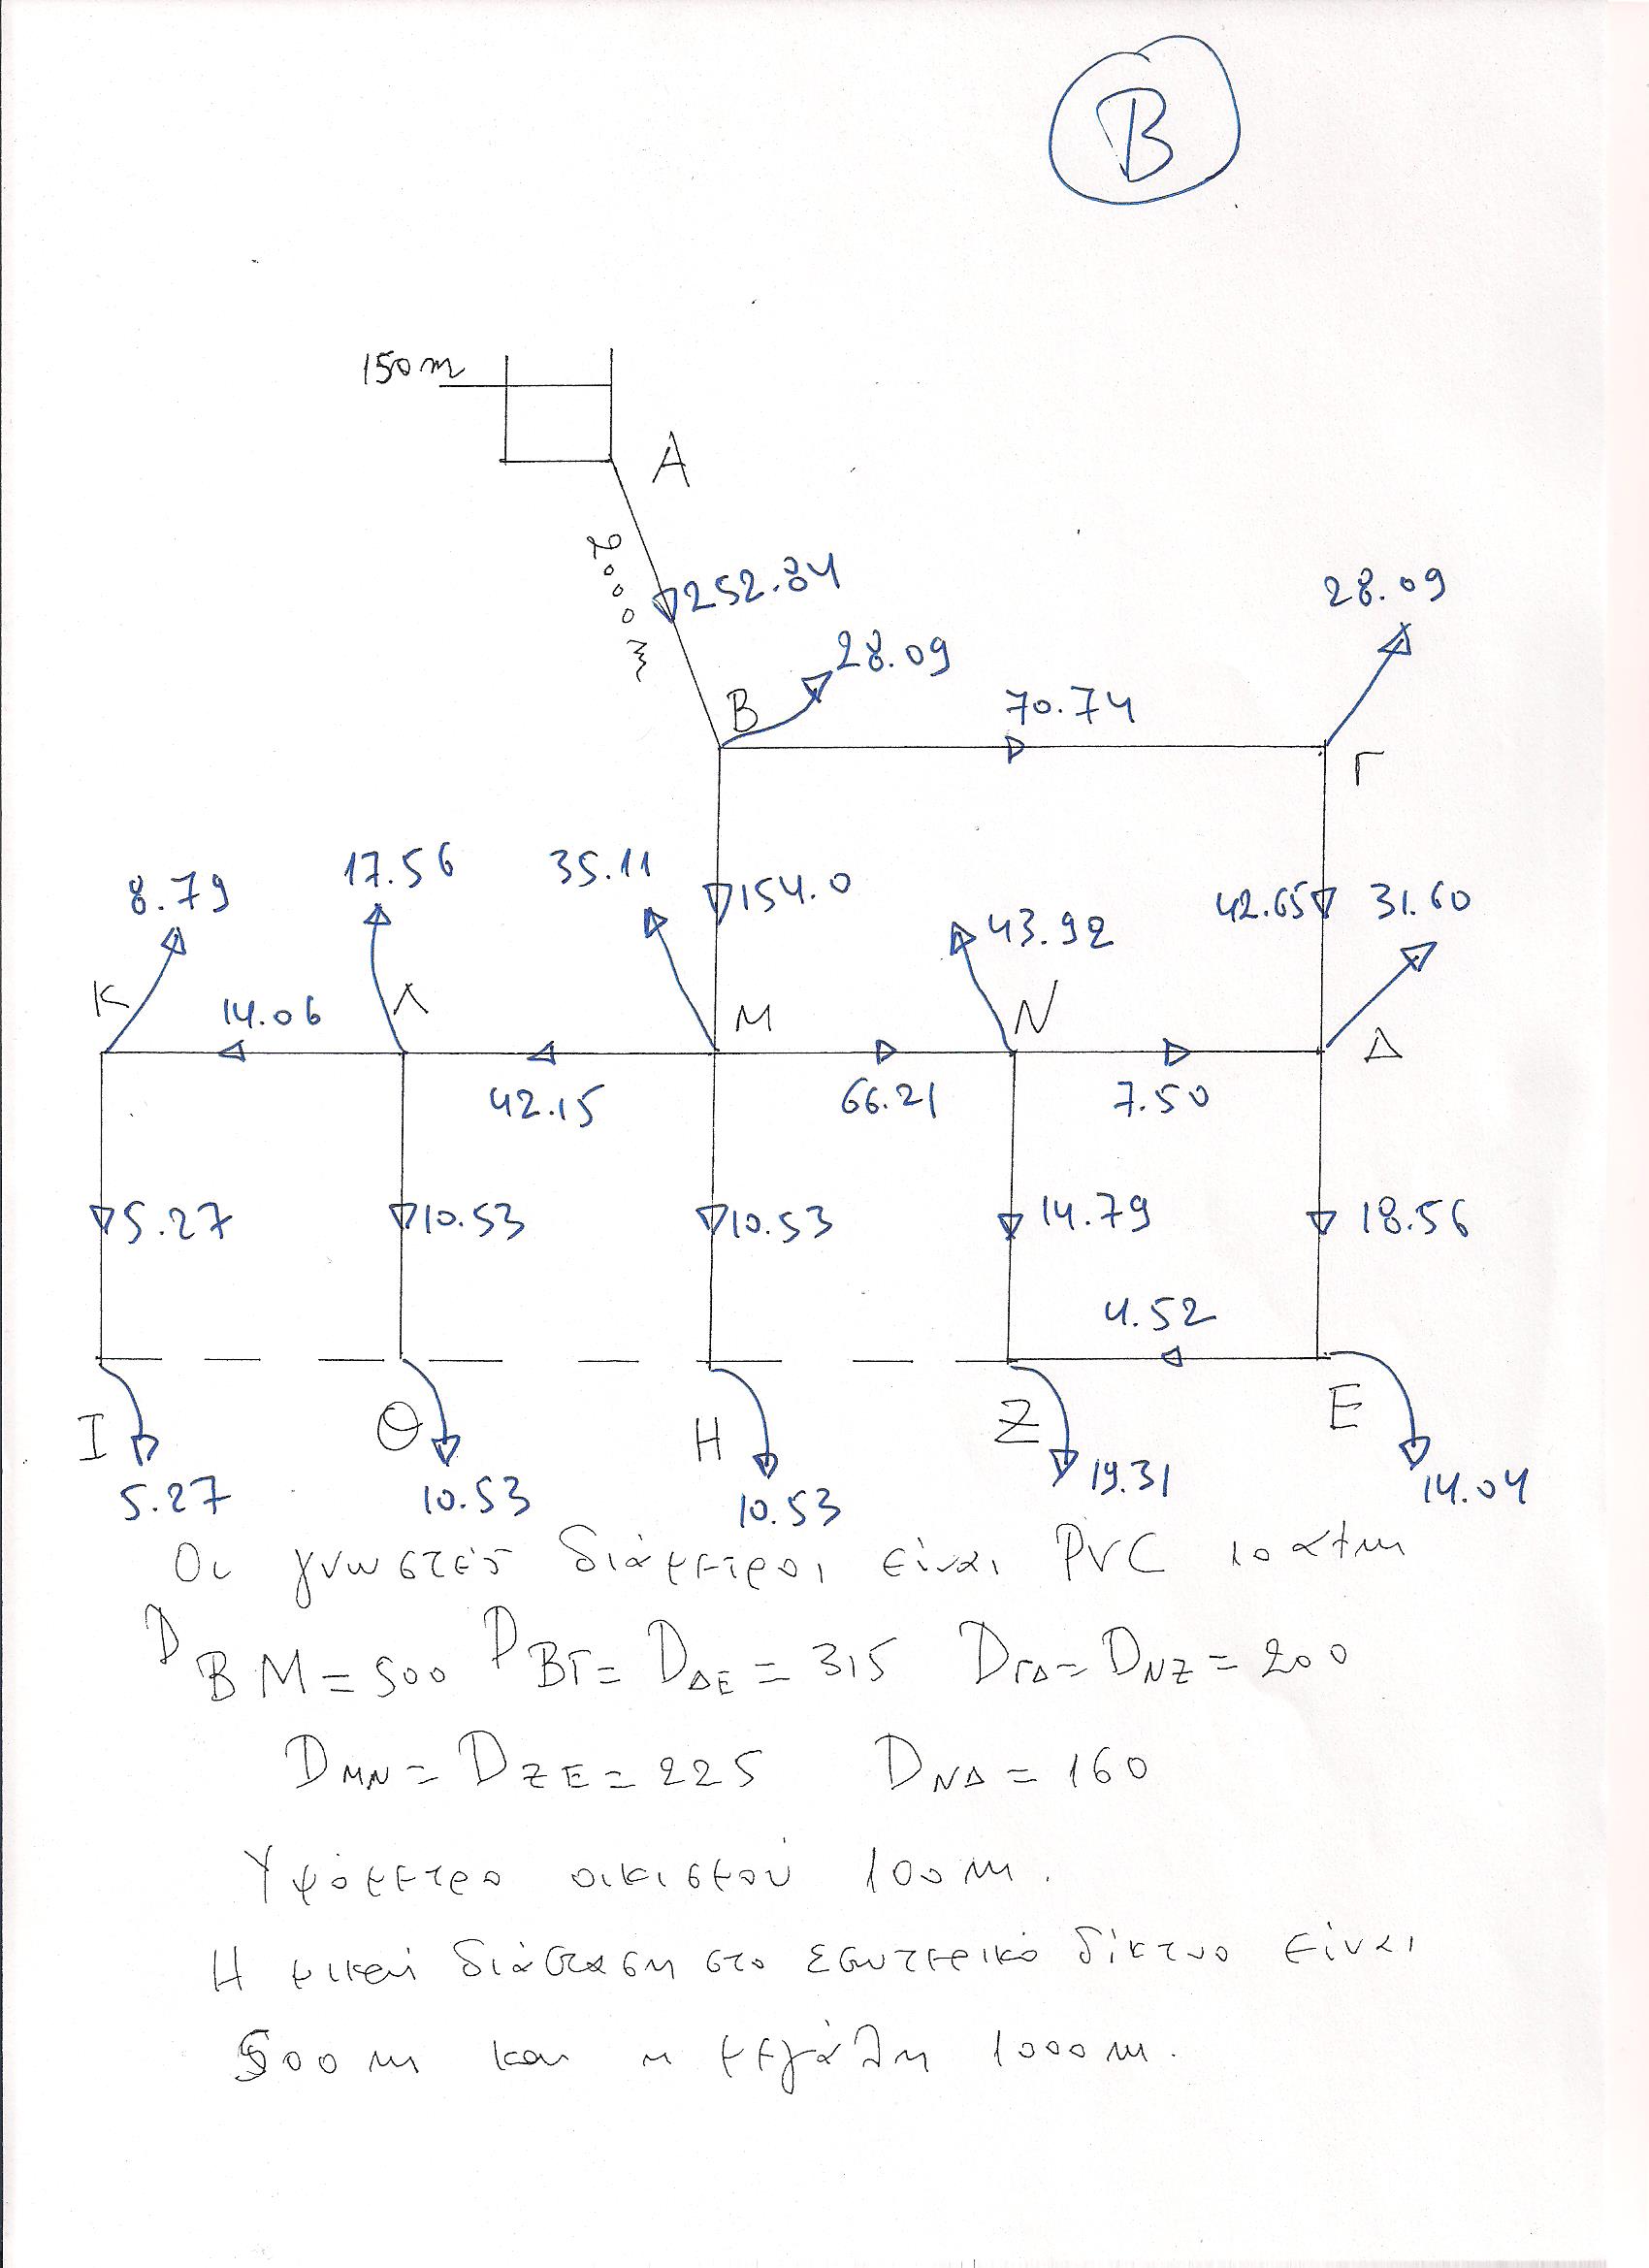 B
150m
A
2000m
252.84
28.09
28.09
B
70.74
Γ
8.79
17.56
35.11
154.0
43.92
42.65
31.60
K
14.06
Λ
M
N
Δ
42.15
66.21
7.50
5.27
10.53
10.53
14.79
18.56
4.52
I
Θ
H
Z
E
5.27
10.53
10.53
19.31
14.04
Οι γνωστές διάμετροι είναι PVC 10 atm
D BM = 500 D BΓ = D ΔE = 315 D ΓΔ = D NZ = 200
D MN = D ZE = 225 D NΔ = 160
Υψόμετρο οικισμού 100 m.
Η μικρή διάσταση στο εσωτερικό δίκτυο είναι
500 m και η μεγάλη 1000 m.